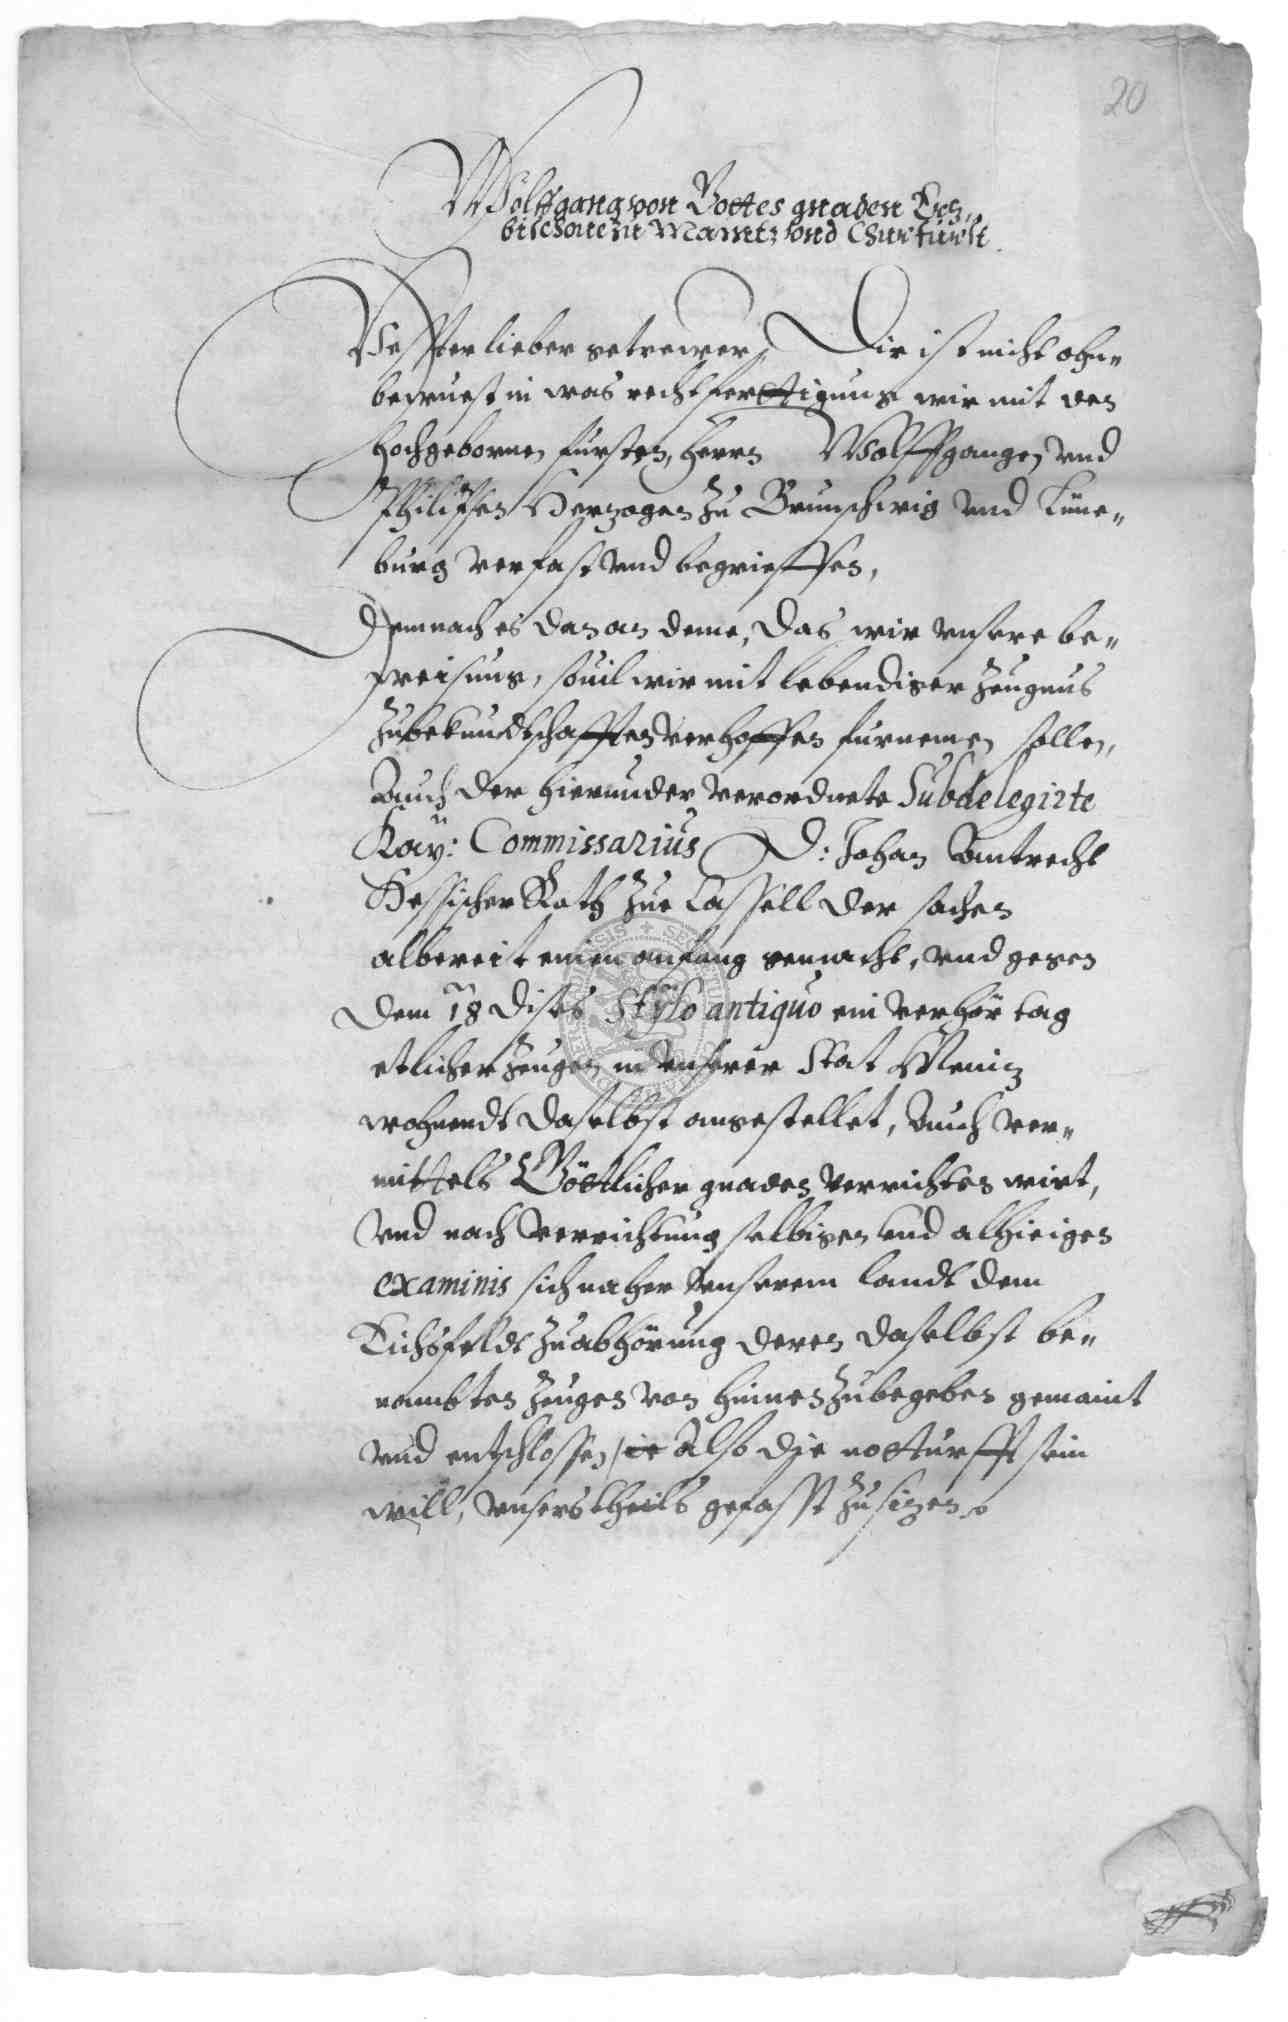 20
Wolffgang von Gottes gnaden Ertz,,
bischoue zu Maintz vnd Churfürst.
Vesster lieber getrewer, Dir ist nicht ohn„
bewuest in was rechtferttigung wir mit den
hochgebornen fursten, herrn Wolffgangen vnd
Philipsen Hertzogen zu Brunschwig vnd Lüne„
burg verfast vnd begrieffen,
Demnach es dan an deme, das wir vnsere be„
weisung, souil wir mit lebendiger zeugnus
zubekundtschafften verhoffen furnemen sollen,
Auch der hierunder verordnete Subdelegirte
Kay: Commissarius D: Johan Antrecht
Hessischer Rath zue Cassell der sachen
albereit einen anfang gemacht, vnd gegen
dem 18 dises Stylo antiquo ein verhör tag
etlicher zeugen in vnserer Stat Meintz
wohnendt daselbst angestellet, Auch ver„
mittels Göttlicher gnaden verrichten wirt,
vnd nach verrichtung selbigen vnd alhieigen
examinis sich naher vnserem landt dem
Eichsfeldt zu abhörung deren daselbst be„
nambten zeugen von hinnen zubegeben gemaint
vnd entschlossen, Also die notturfft sein
will, vnsers theils gefasst zu sitzen.